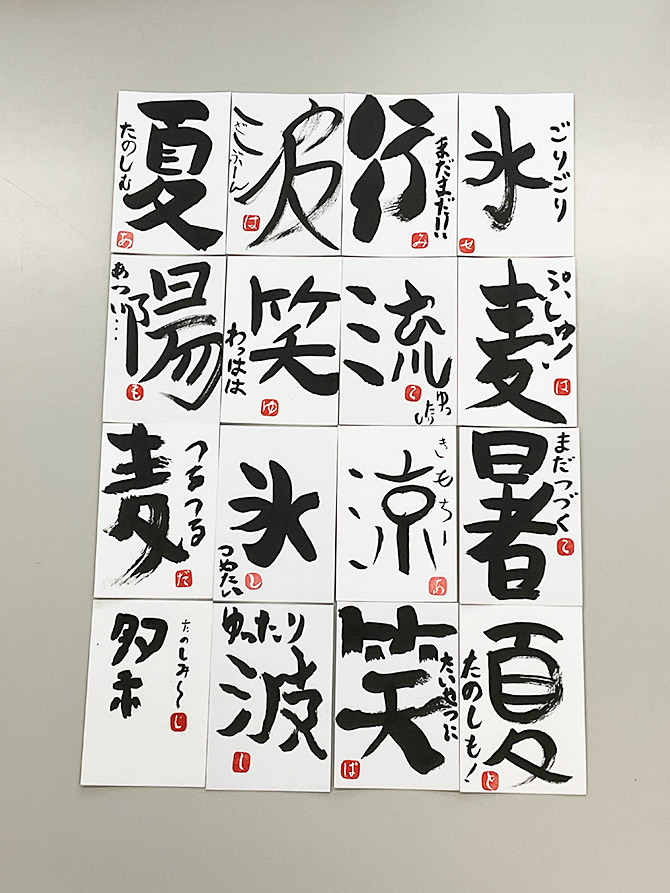 夏
たのしむ
あ
波
ざぶーん
は
行
まだまだ!!
み
氷
ごりごり
せ
陽
あつい…
も
笑
わっはは
ゆ
流
ゆったり
て
麦
ぷしゅ!
は
麦
つるつる
だ
氷
つめたい
し
涼
きもちー
あ
暑
まだつづく
て
たのしみ〜
じ
波
ゆったり
し
笑
たいせつに
ば
夏
たのしも!
と